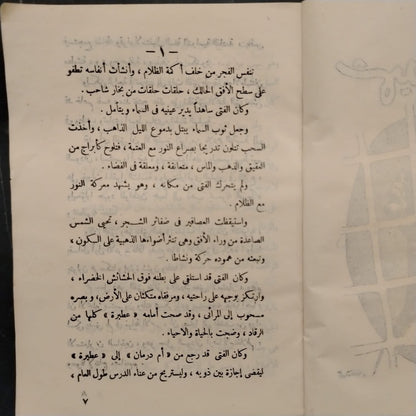 — ١ —
تنفس الفجر من خلف أكمة الظلام ، وأنشأت أنفاسه تطفو
على سطح الأفق الحالك ، حلقات حلقات من بخار شاحب .
وكان الفتى ساهداً يدير عينيه فى السماء ويتأمل .
وجعل ثوب السماء يبتل بدموع الليل الذاهب ، وأخذت
السحب تتلون تدريجا بصراع النور مع العتمة ، فتلوح كأبراج من
العقيق والذهب والماس ، متعانقة ، ومعلقة فى الفضاء .
ولم يتحرك الفتى من مكانه ، وهو يشهد معركة النور
مع الظلام .
واستيقظت العصافير فى ضفائر الشجر ، تحيى الشمس
الصاعدة من وراء الأفق وهى تنثر أضواءها الذهبية على السكون ،
وتبعثه من هموده حركة ونشاطا .
وكان الفتى قد استلقى على بطنه فوق الحشائش الخضراء ،
وارتكز بوجهه على راحتيه ، ومرفقاه متكئان على الأرض ، وبصره
مسحوب إلى المرائى ، وقد صحت أمامه « عطبرة » كلها من
الرقاد ، وضجت بالحياة والأحياء .
وكان الفتى قد رجع من « أم درمان » إلى « عطبرة »
ليقضى إجازة بين ذويه ، وليستريح من عناء الدرس طول العام ،
٧